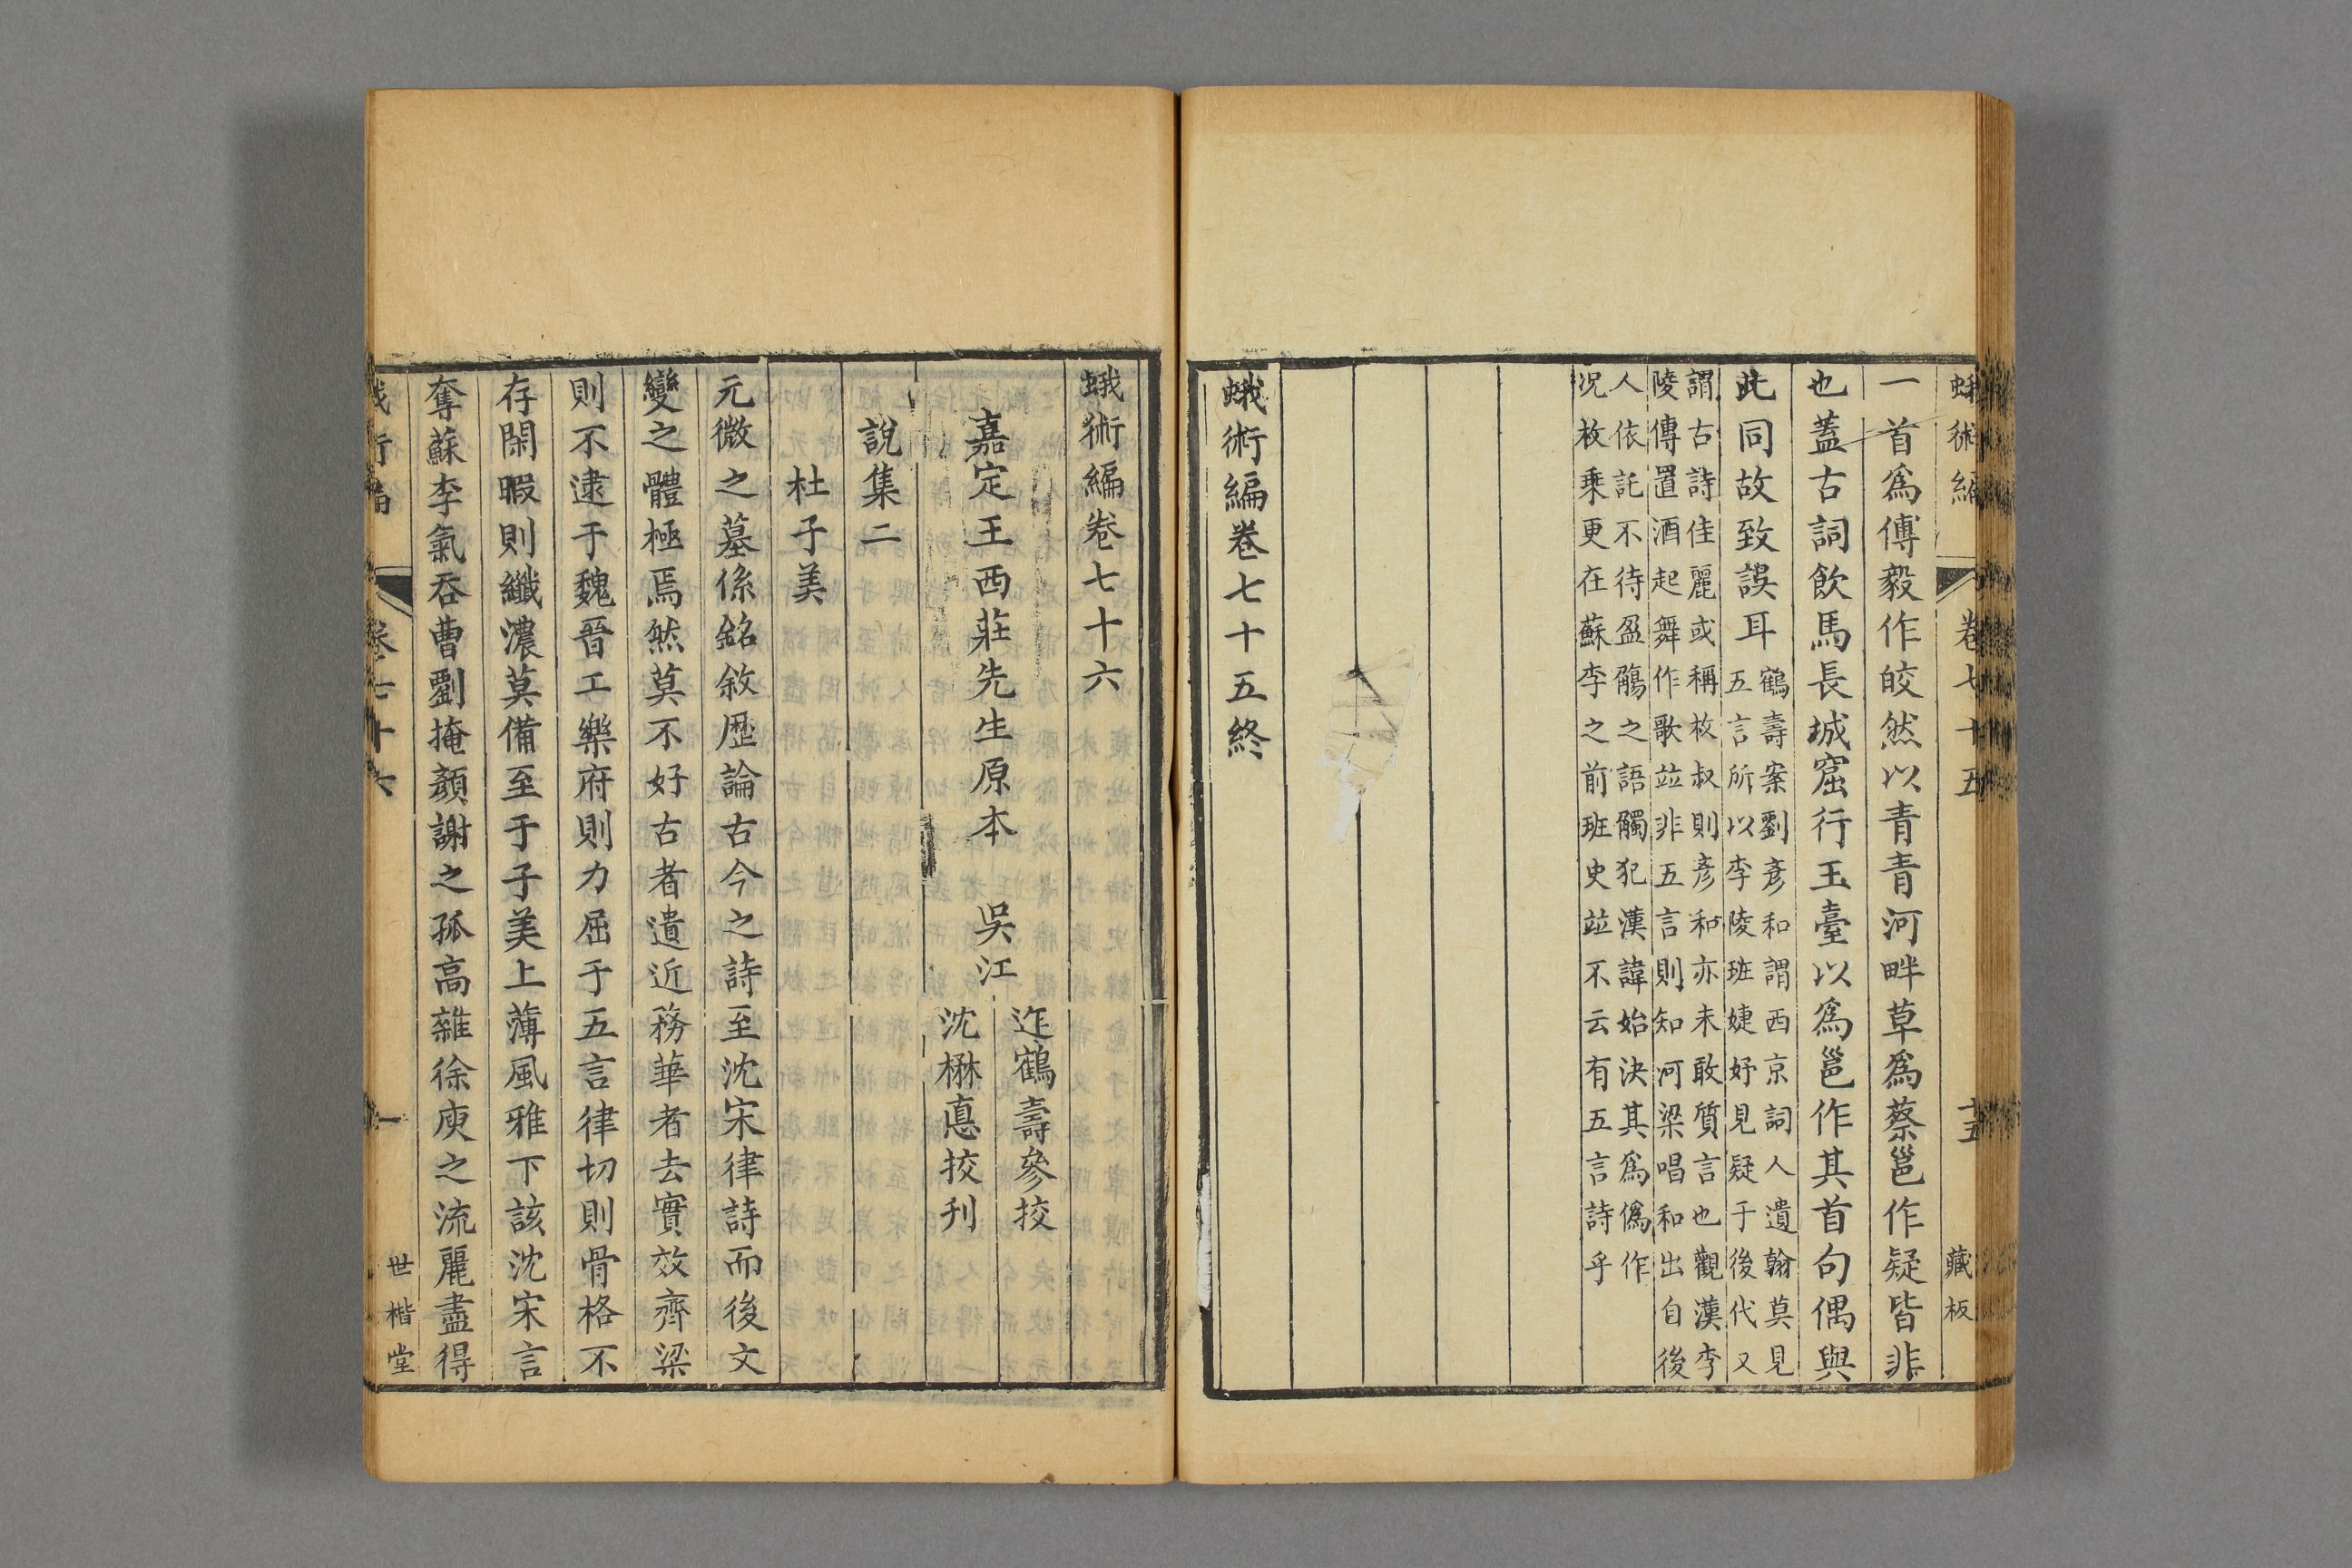 蛾術編 卷七十五 十五 藏板
一首爲傅毅作皎然以青青河畔草爲蔡邕作疑皆非
也蓋古詞飲馬長城窟行玉臺以爲邕作其首句偶與
此同故致誤耳
鶴壽案劉彥和謂西京詞人遺翰莫見
五言所以李陵班婕妤見疑于後代又
謂古詩佳麗或稱枚叔則彥和亦未敢質言也觀漢李
陵傳置酒起舞作歌竝非五言則知河梁唱和出自後
人依託不待盈觴之語觸犯漢諱始決其爲僞作
况枚乗更在蘇李之前班史竝不云有五言詩乎
蛾術編卷七十五終
蛾術編卷七十六
嘉定王西莊先生原本
吳江
迮鶴壽參挍
沈楙悳挍刋
說集二
杜子美
元微之墓係銘敘歷論古今之詩至沈宋律詩而後文
變之體極焉然莫不好古者遺近務華者去實效齊梁
則不逮于魏晉工樂府則力屈于五言律切則骨格不
存閑暇則纖濃莫備至于子美上薄風雅下該沈宋言
奪蘇李氣吞曹劉掩顏謝之孤高雜徐庾之流麗盡得
卷七十六 一 世楷堂